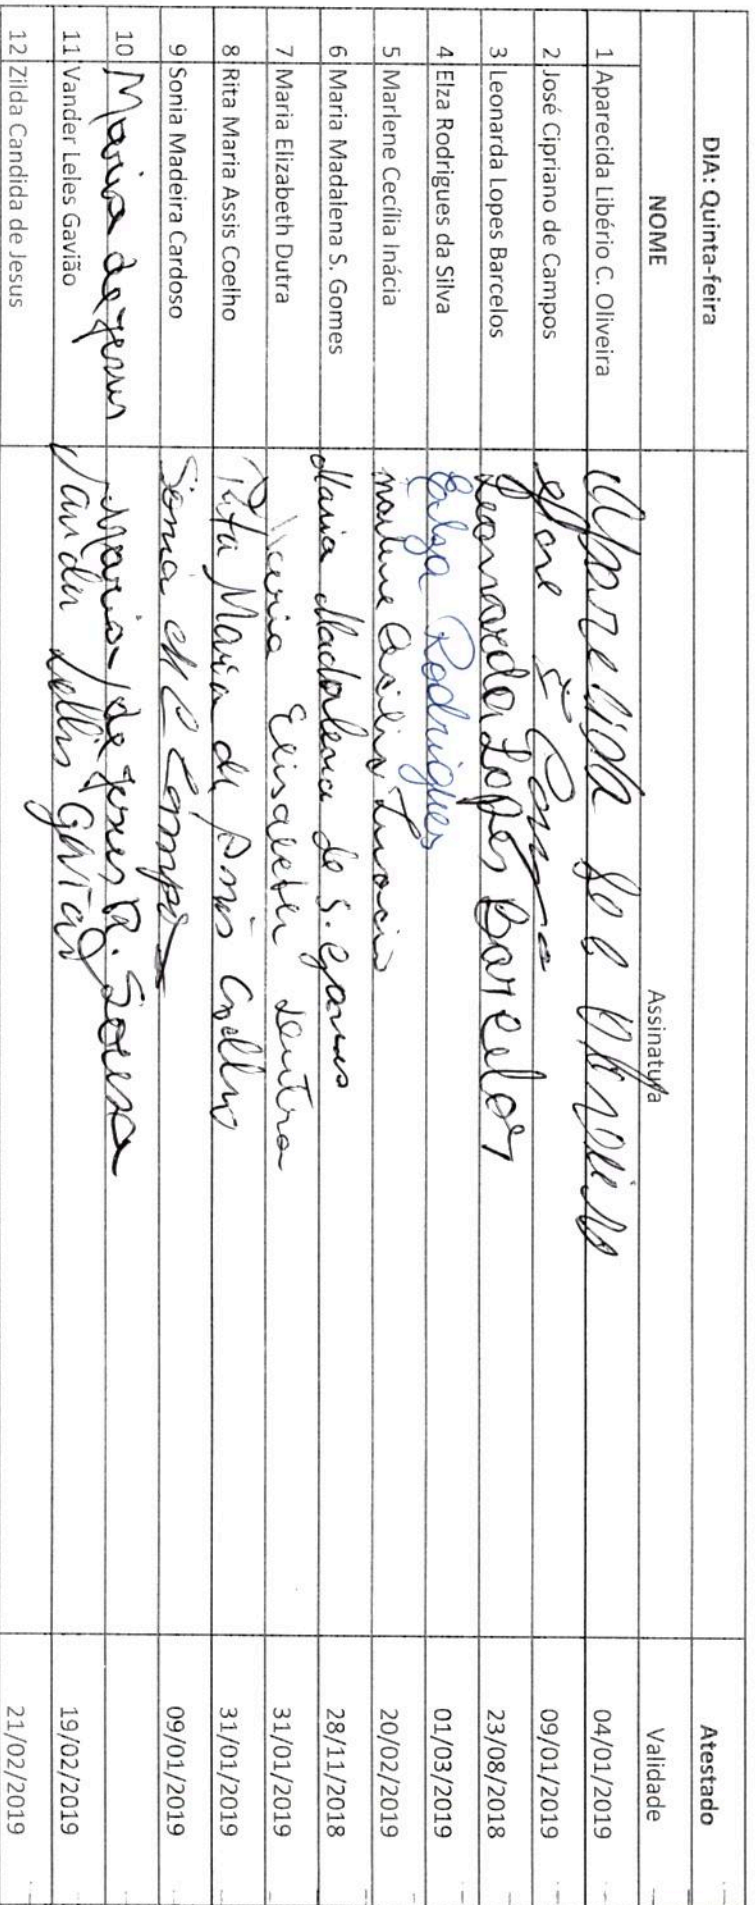 DIA: Quinta-feira Atestado
NOME Assinatura Validade
1 Aparecida Libério C. Oliveira Aparecida 04/01/2019
2 José Cipriano de Campos Jose 09/01/2019
3 Leonarda Lopes Barcelos Leonarda Lopes Barcelos 23/08/2018
4 Elza Rodrigues da Silva Elza Rodrigues 01/03/2019
5 Marlene Cecília Inácia Marlene 20/02/2019
6 Maria Madalena S. Gomes Maria Madalena de S. Gomes 28/11/2018
7 Maria Elizabeth Dutra Maria Elisabeth Dutra 31/01/2019
8 Rita Maria Assis Coelho Rita Maria de Assis Coelho 31/01/2019
9 Sonia Madeira Cardoso Sonia 09/01/2019
10 Maria de Jesus Maria de Jesus R. Sousa
11 Vander Leles Gavião Vander Lellis Gavião 19/02/2019
12 Zilda Candida de Jesus 21/02/2019